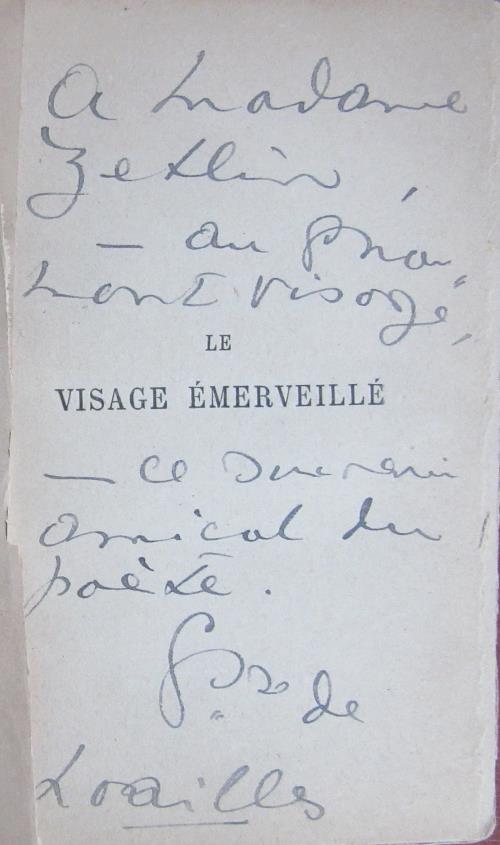 A Madame
Zetlin,
— au char-
mant visage,
LE
VISAGE ÉMERVEILLÉ
— ce souvenir
amical du
poète.
de
Noailles